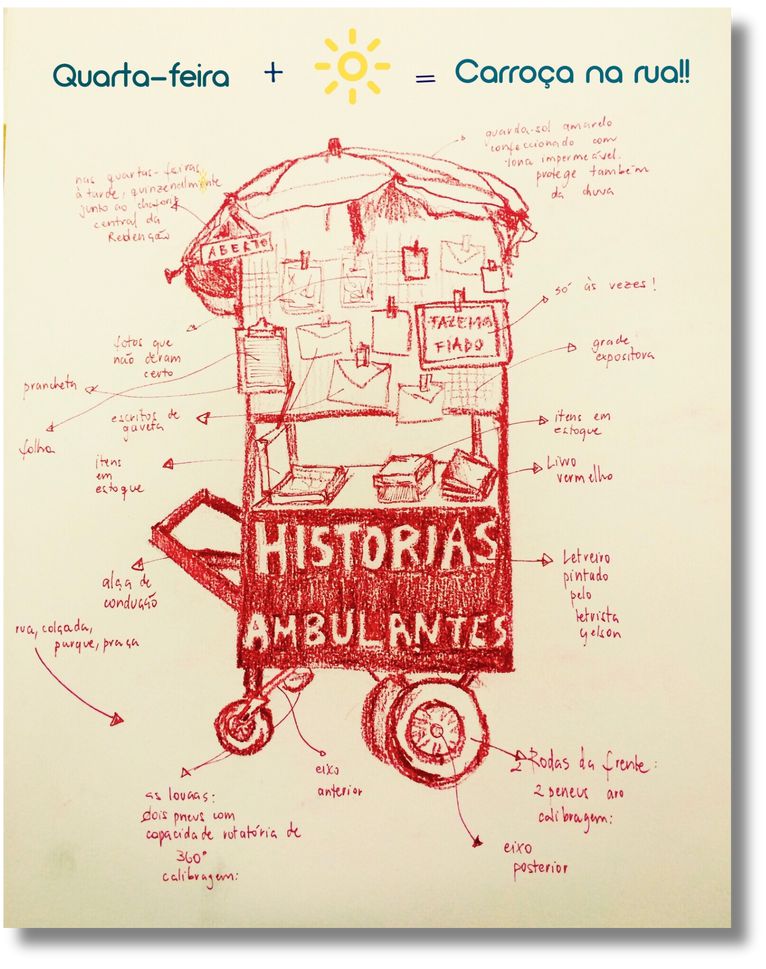 Quarta-feira + = Carroça na rua!!
guarda-sol amarelo
confeccionado com
lona impermeável.
protege também
da chuva
nas quartas-feiras
à tarde, quinzenalmente
junto ao
central da
Redenção
ABERTO
só às vezes!
FAZEMOS
FIADO
fotos que
não deram
certo
grade
expositora
prancheta
escritos de
gaveta
itens em
estoque
folha
itens
em
estoque
Livro
vermelho
HISTORIAS
AMBULANTES
Letreiro
pintado
pelo
letrista
Gelson
alça de
condução
rua, calçada,
parque, praça
2 Rodas da frente:
2 pneus aro
calibragem:
eixo
anterior
as loucas:
dois pneus com
capacidade rotatória de
360°
calibragem:
eixo
posterior